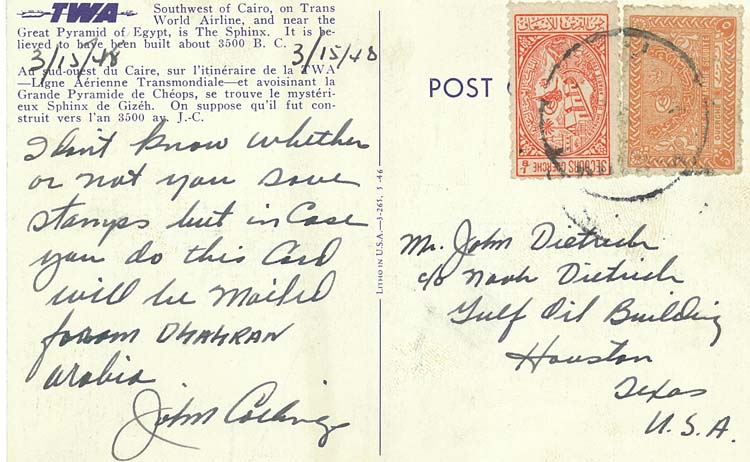 TWA
Southwest of Cairo, on Trans
World Airline, and near the
Great Pyramid of Egypt, is The Sphinx. It is be-
lieved to have been built about 3500 B. C.
3/15/48 3/15/48
Au sud-ouest du Caire, sur l'itinéraire de la TWA
—Ligne Aérienne Transmondiale—et avoisinant la
Grande Pyramide de Chéops, se trouve le mystéri-
eux Sphinx de Gizéh. On suppose qu'il fut con-
struit vers l'an 3500 av. J.-C.
I don't know whether
or not you save
stamps but in case
you do this card
will be mailed
from DHAHRAN
arabia
John
LITHO IN U.S.A.—3-265, 5-46
POST
SECOURS GUERCHE
1/8
Mr. John Dietrich
c/o Noah Dietrich
Gulf Oil Building
Houston
Texas
U.S.A.